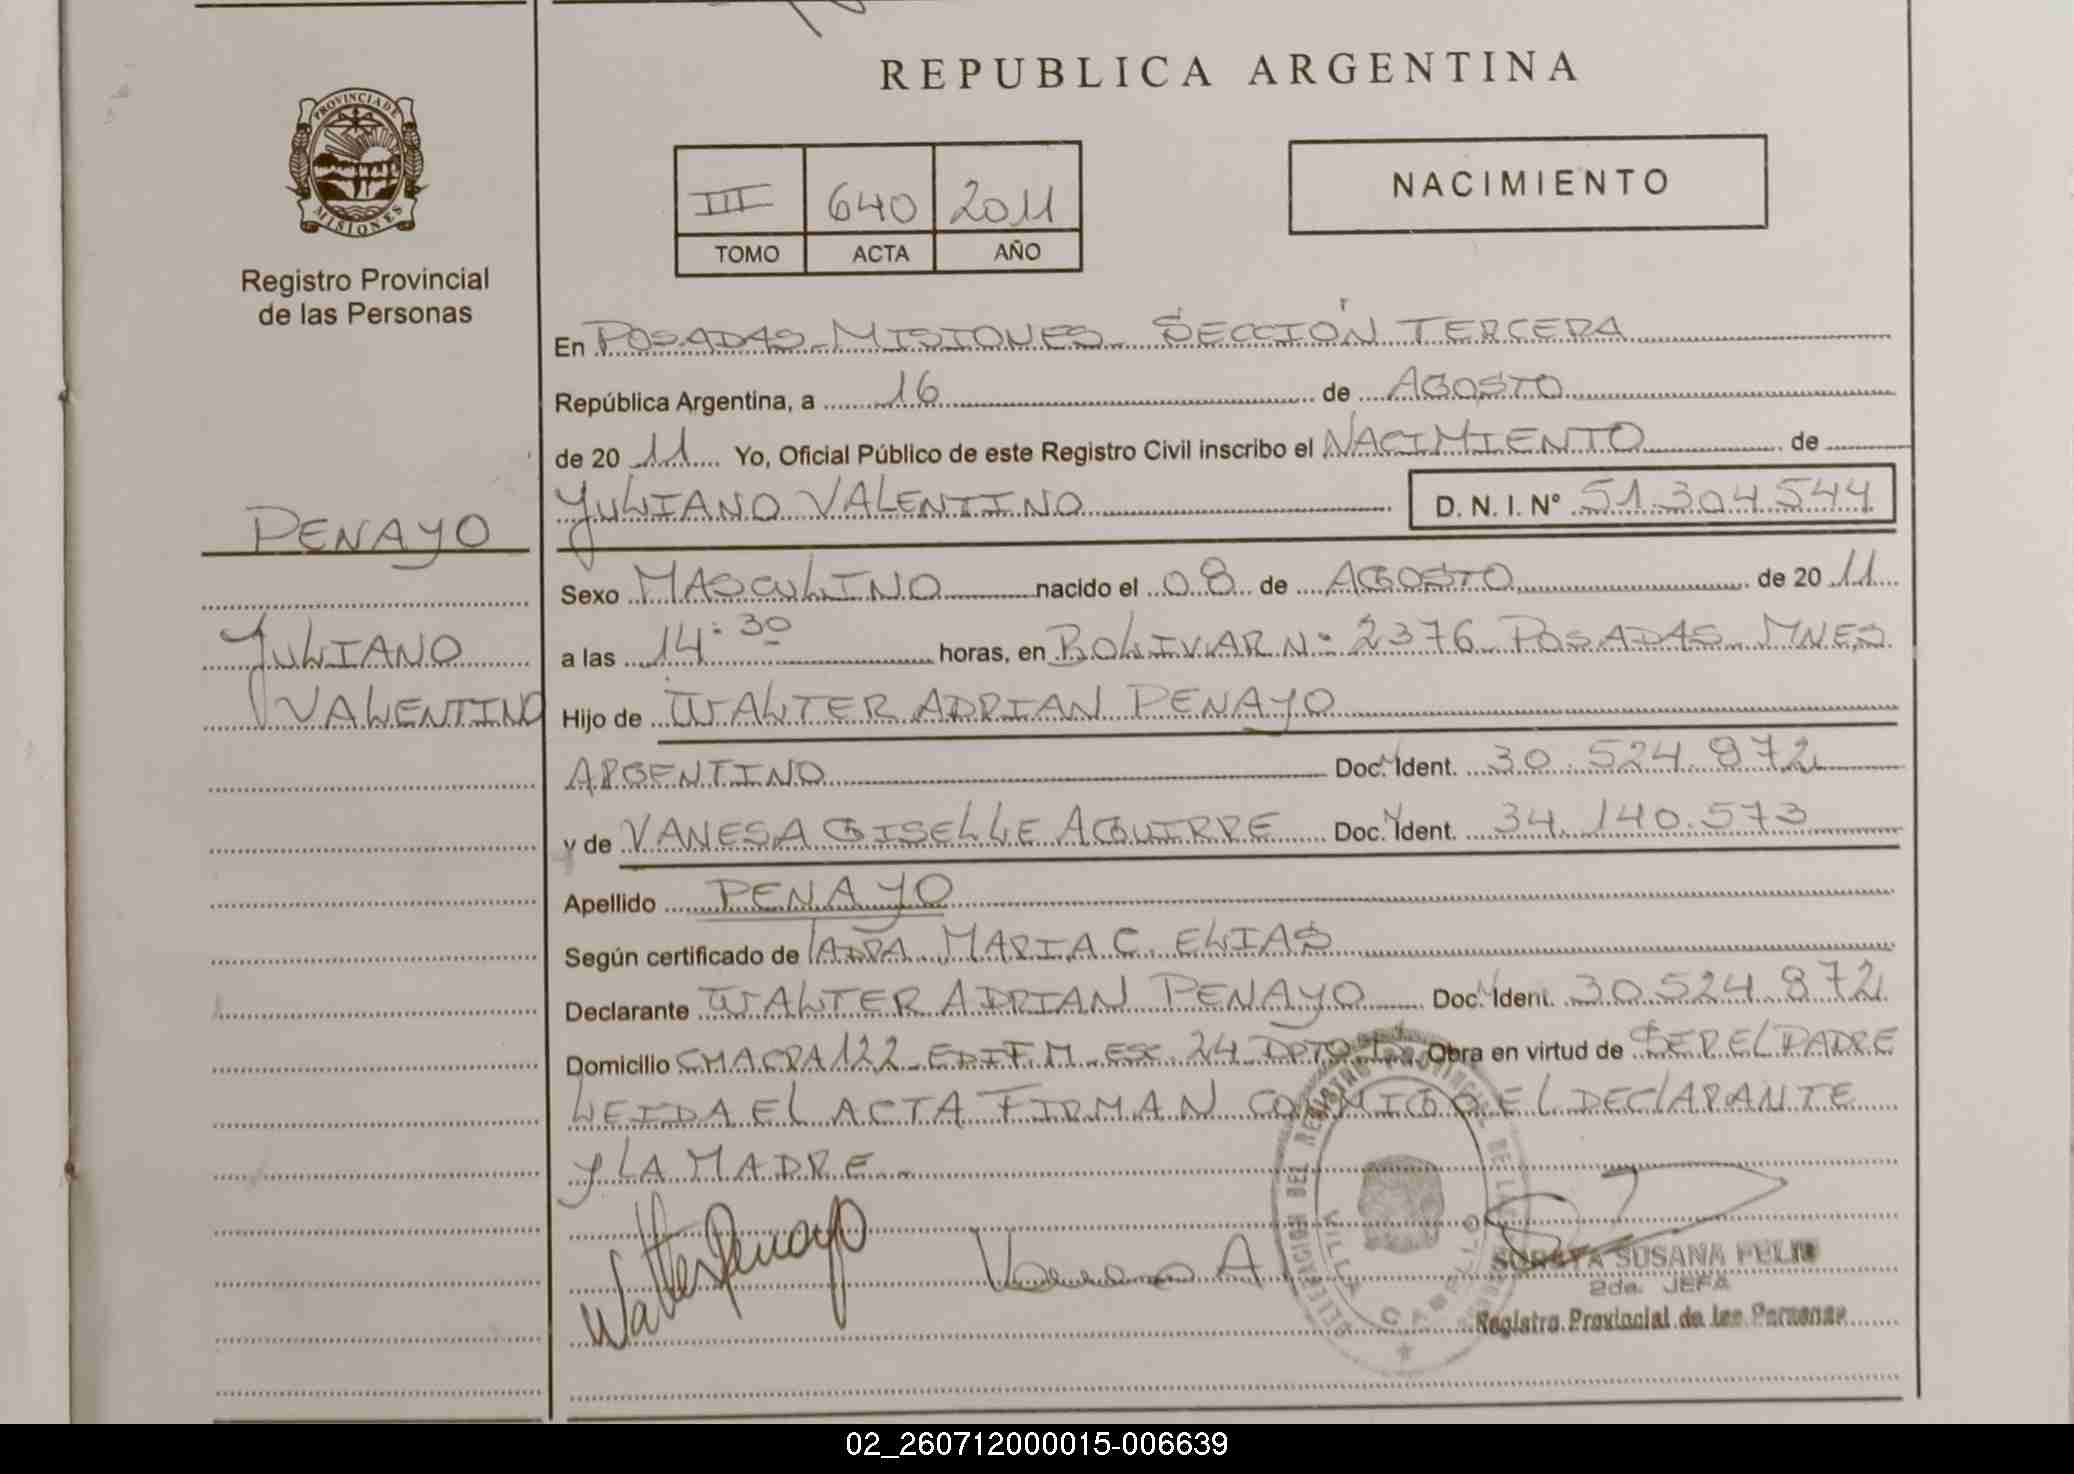 REPUBLICA ARGENTINA
PROVINCIA DE
MISIONES
Registro Provincial
de las Personas
III 640 2011
TOMO ACTA AÑO
NACIMIENTO
En POSADAS-MISIONES- SECCIÓN TERCERA
República Argentina, a 16 de AGOSTO
de 20 11 Yo, Oficial Público de este Registro Civil inscribo el NACIMIENTO de
YULIANO VALENTINO D. N. I. Nº 51.304.544
PENAYO
Sexo MASCULINO nacido el 08 de AGOSTO de 20 11
a las 14:30 horas, en BOLIVAR Nº 2376 POSADAS-MNES
YULIANO
VALENTINO
Hijo de WALTER ADRIAN PENAYO
ARGENTINO Doc. Ident. 30.524.872
y de VANESA GISELLE AGUIRRE Doc. Ident. 34.140.573
Apellido PENAYO
Según certificado de MARIA C. ELIAS
Declarante WALTER ADRIAN PENAYO Doc. Ident. 30.524.872
Domicilio CHACRA 122 EDIF. M ESC. 24 DPTO Obra en virtud de SER EL PADRE
LEIDA EL ACTA FIRMAN CONMIGO EL DECLARANTE
Y LA MADRE.-
Walter Penayo
DELEGACION DEL REGISTRO PROVINCIAL DE LAS
VILLA CABELLO
SUSANA
2da. JEFA
Registro Provincial de las Personas
02_260712000015-006639